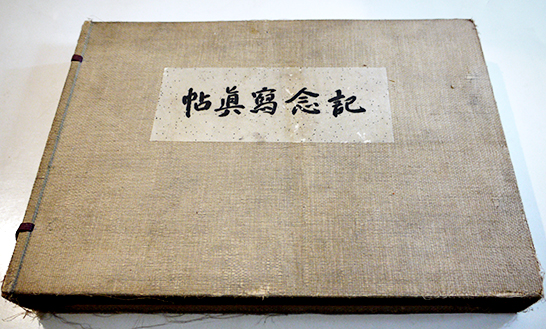 記念寫眞帖